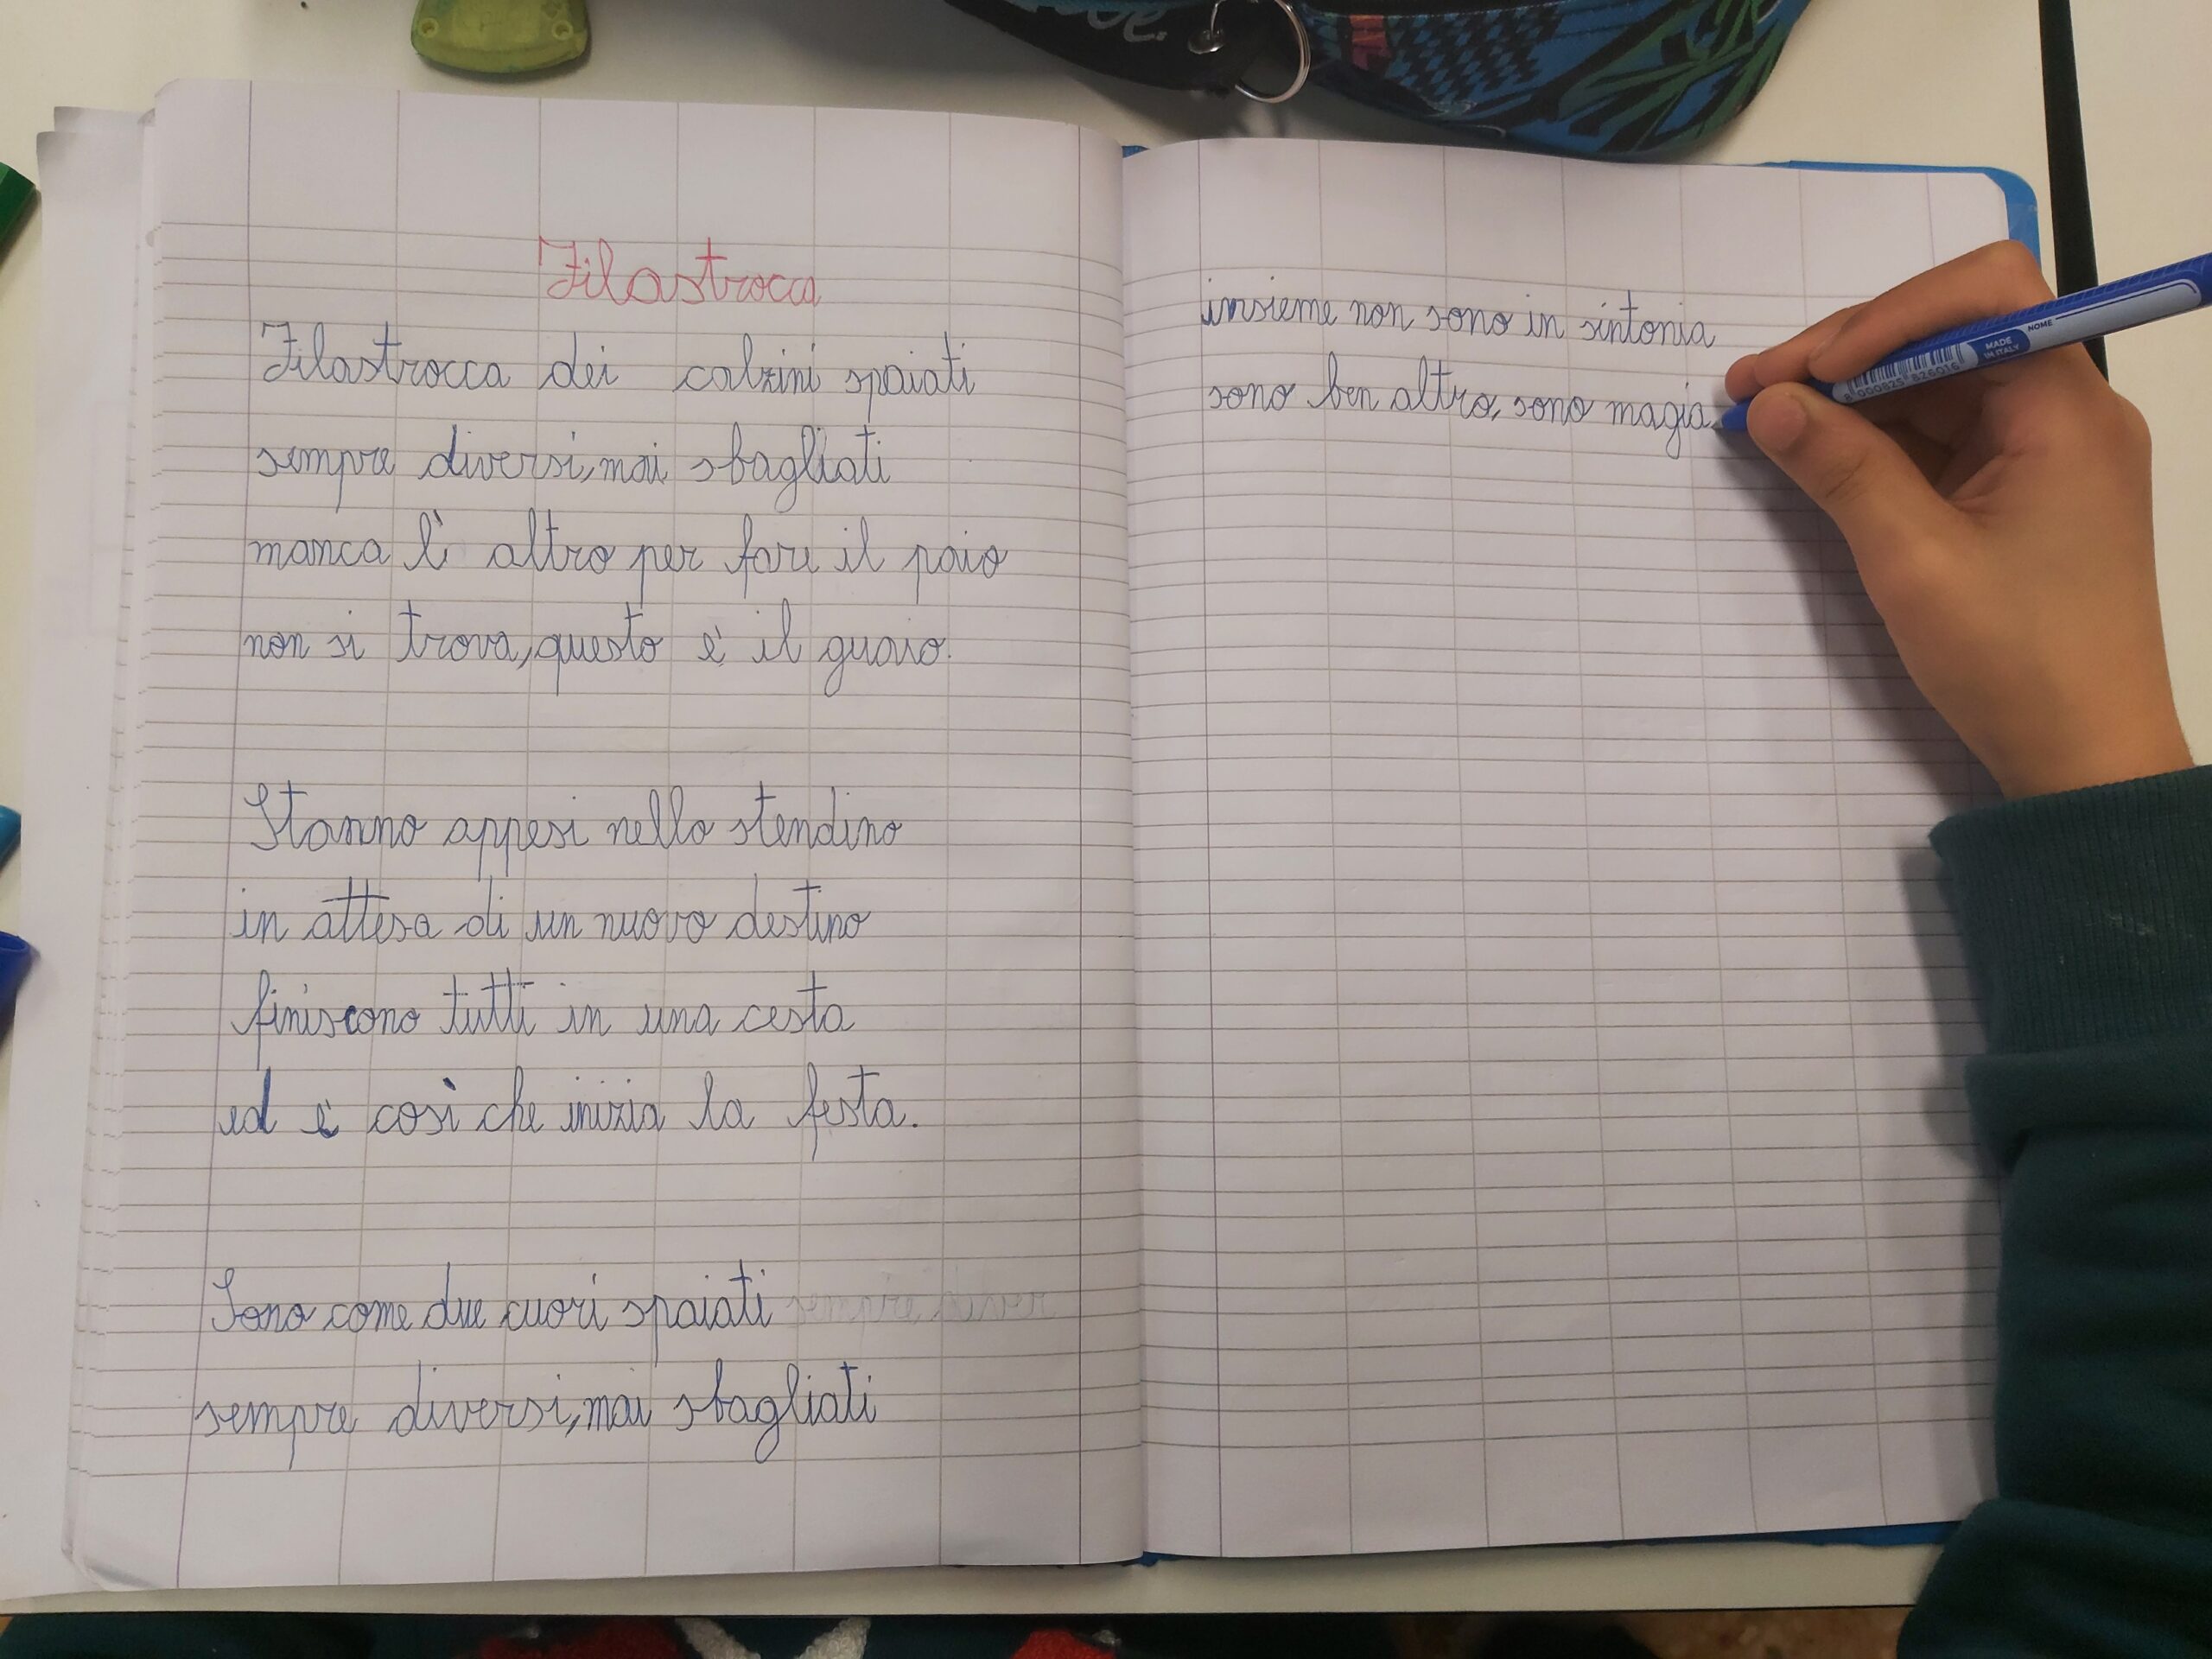 Filastrocca
Filastrocca dei calzini spaiati
sempre diversi, mai sbagliati
manca l' altro per fare il paio
non si trova, questo è il guaio.
Stanno appesi nello stendino
in attesa di un nuovo destino
finiscono tutti in una cesta
ed è così che inizia la festa.
Sono come due cuori spaiati
sempre diversi, mai sbagliati
insieme non sono in sintonia
sono ben altro, sono magia
NOME
MADE
IN ITALY